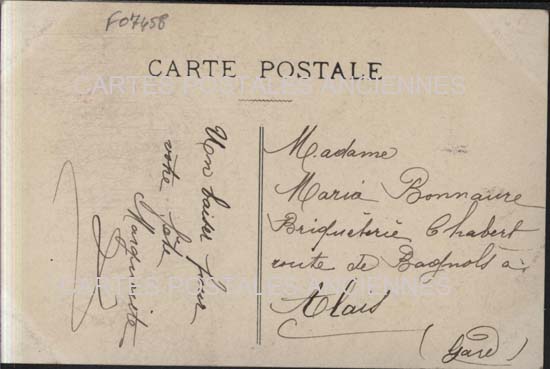 F07458
CARTE POSTALE
CARTES POSTALES ANCIENNES
Un baiser pour
votre fête
Marguerite
Madame
Maria Bonnaure
Briquèterie Chabert
route de Bagnols à
Alais
(Gard)
CARTES POSTALES ANCIENNES